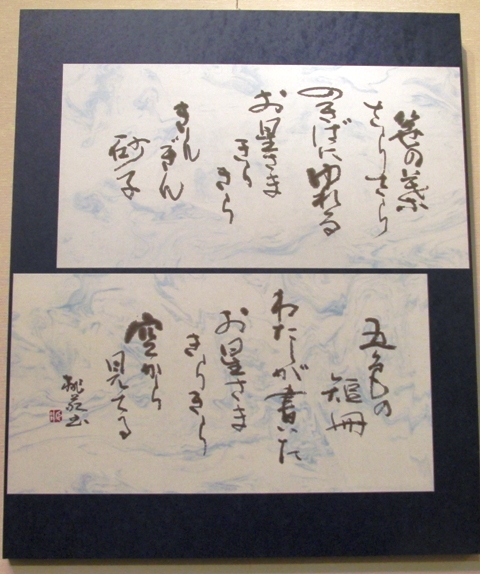 笹の葉
さらさら
のきばにゆれる
お星さま
きらきら
きんぎん
砂子
五色の
短冊
わたしが書いた
お星さま
きらきら
空から
見てる